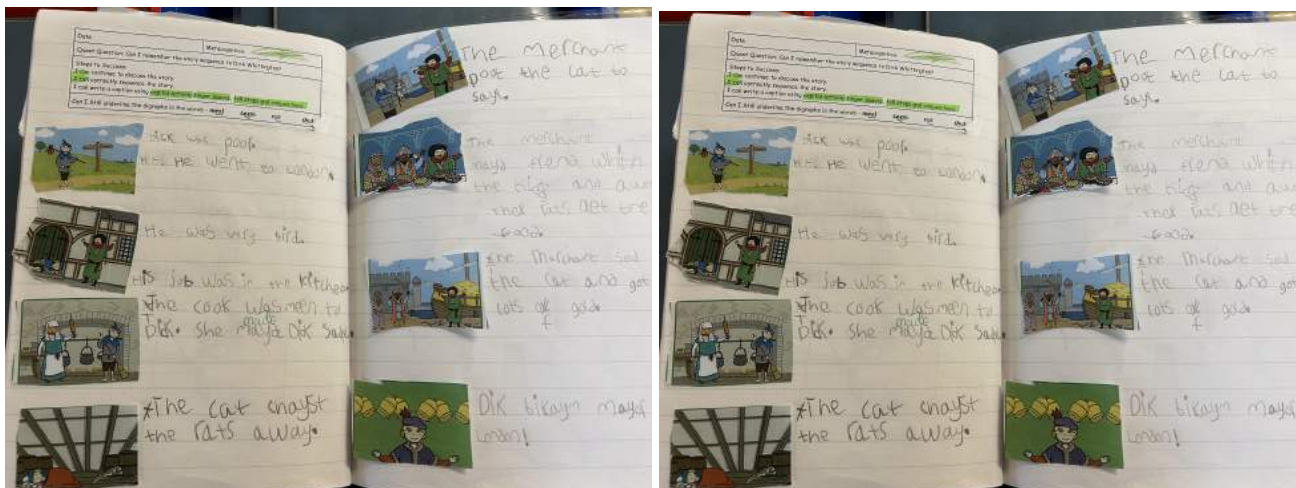 Date
Metacognition
Quest Question: Can I remember the story sequence to Dick Whittington?
Steps to Success:
I can continue to discuss the story.
I can correctly sequence the story.
I can write a caption using capital letters, finger spaces, full stops and
Can I still underline the digraphs in the words -
Dick was poor.
He went to London.
He was very tird.
His job was in the kitchen
The cook was meen to
Dik. She made Dik sad.
The cat chayst
the rats away.
The Merchant
the cat to
The merchant
the king and
rats
the
food.
The Merchant
the cat and got
lots of gold.
Dik bikaym mayor
London!
Date
Metacognition
Quest Question: Can I remember the story sequence to Dick Whittington?
Steps to Success:
I can continue to discuss the story.
I can correctly sequence the story.
I can write a caption using capital letters, finger spaces, full stops and
Can I still underline the digraphs in the words -
Dick was poor.
He went to London.
He was very tird.
His job was in the kitchen
The cook was meen to
Dik. She made Dik sad.
The cat chayst
the rats away.
The Merchant
the cat to
The merchant
the king and
rats
the
food.
The Merchant
the cat and got
lots of gold.
Dik bikaym mayor
London!